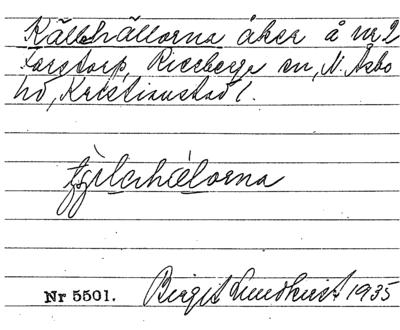 Källehällorna åker å nr 2
Forstorp, Riseberga sn, N. Åsbo
hd, Kristianstad l.
Nr 5501. Birgit Lundkvist 1935